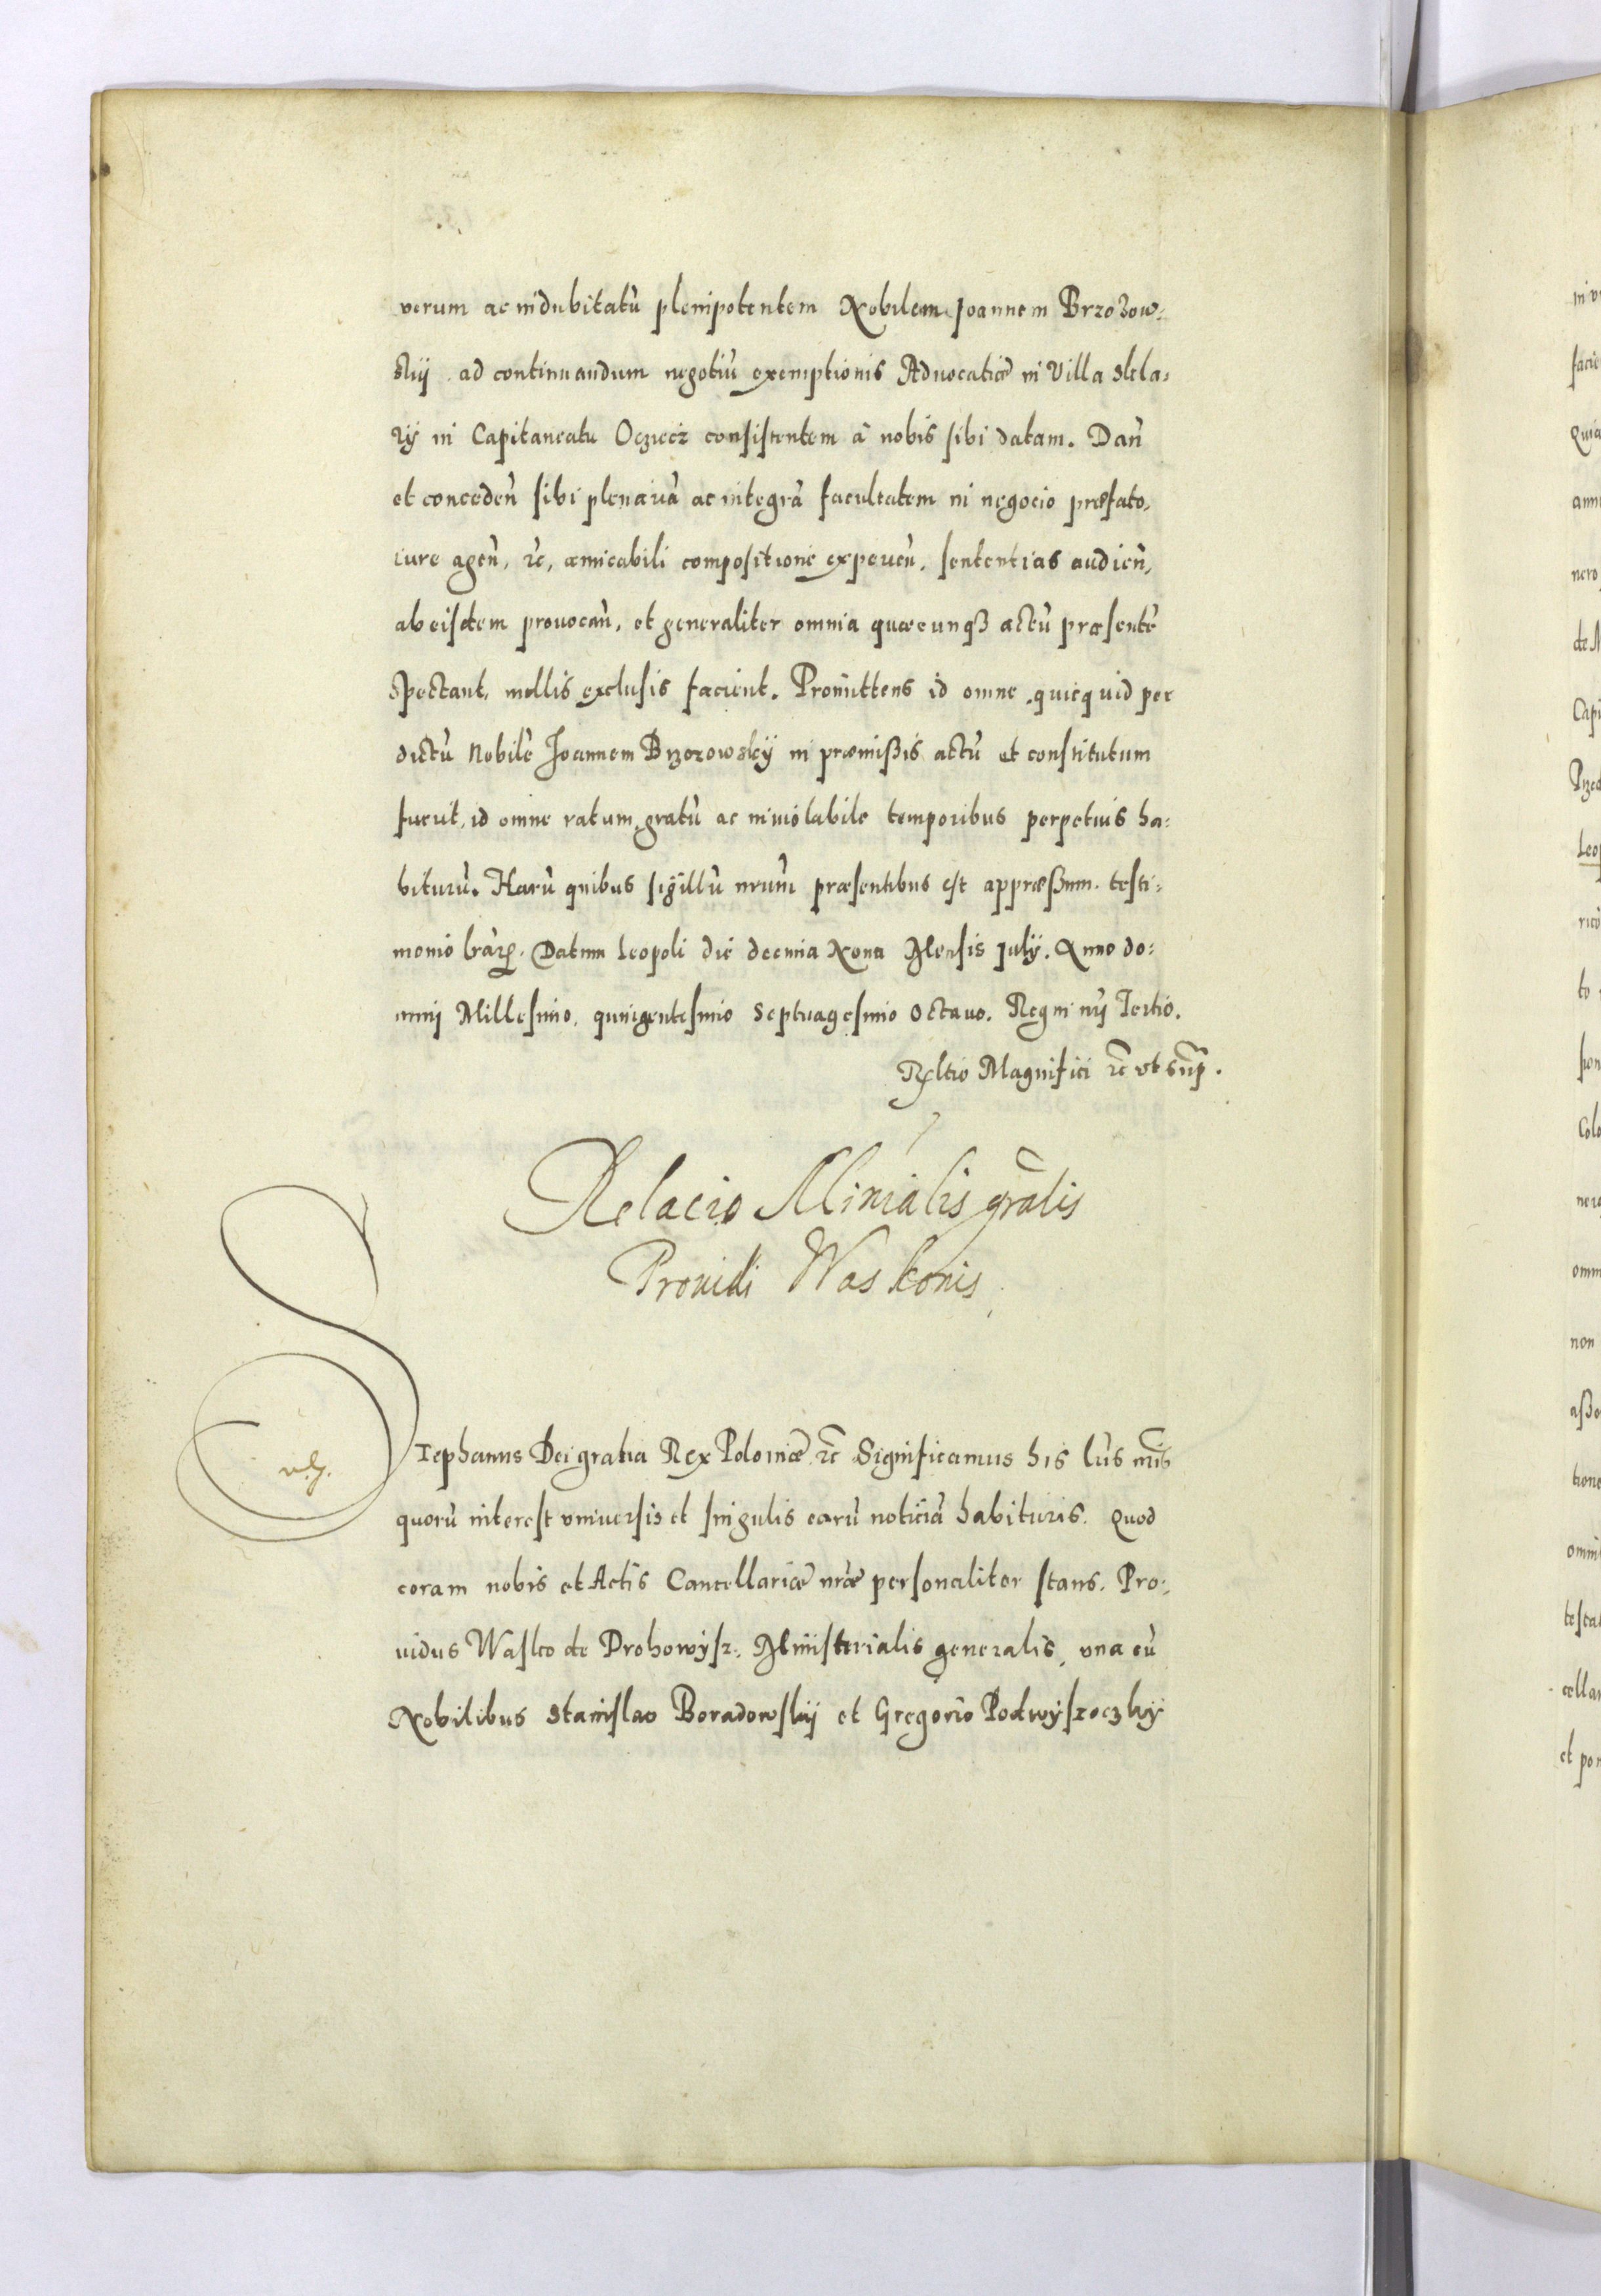 verum ac indubitatũ plenipotentem Nobilem Joannem Brzozow-
skij ad continuandum negotiũ exemptionis Aduocatiæ in Villa
in Capitaneatu consistentem â nobis sibi datam. Dan̄
et conceden̄ sibi plenariã ac integrã facultatem in negocio præfato,
iure agen̄, &c, amicabili compositione experien̄, sententias audien̄,
ab eisdem prouocan̄, et generaliter omnia quæcunqꝫ actũ præsentẽ
spectant, exclusis facient. Promittens id omne quicquid per
dictũ Nobilẽ Joannem Brzozowskij in præmißis actũ et constitutum
fuerit, id omne ratum, gratũ ac inuiolabile temporibus perpetuis ha-
biturũ. Harũ quibus sigillũ nrũm præsentibus est appræßum testi-
monio lrãrꝫ. Datum Leopoli die decima Nona Mensis Julij. Anno do-
mini Millesimo, quingentesimo Septuagesimo Octauo. Regni nrĩ Tertio.
Rłtio Magnifici &c vt sup̃.
Relacio Minialis gr̃alis
Prouidi Waskonis
Stephanus Dei gratia Rex Poloniæ &c Significamus his lr̃is nrĩs
quorũ interest vniuersis et singulis earũ noticiã habituris. Quod
coram nobis et Actis Cancellariæ nr̃æ personaliter stans. Pro-
uidus Wasko de Drohowisz. Ministerialis generalis, vna cũ
Nobilibus Stanislao Boradowskij et Gregorio Podwysoczkij